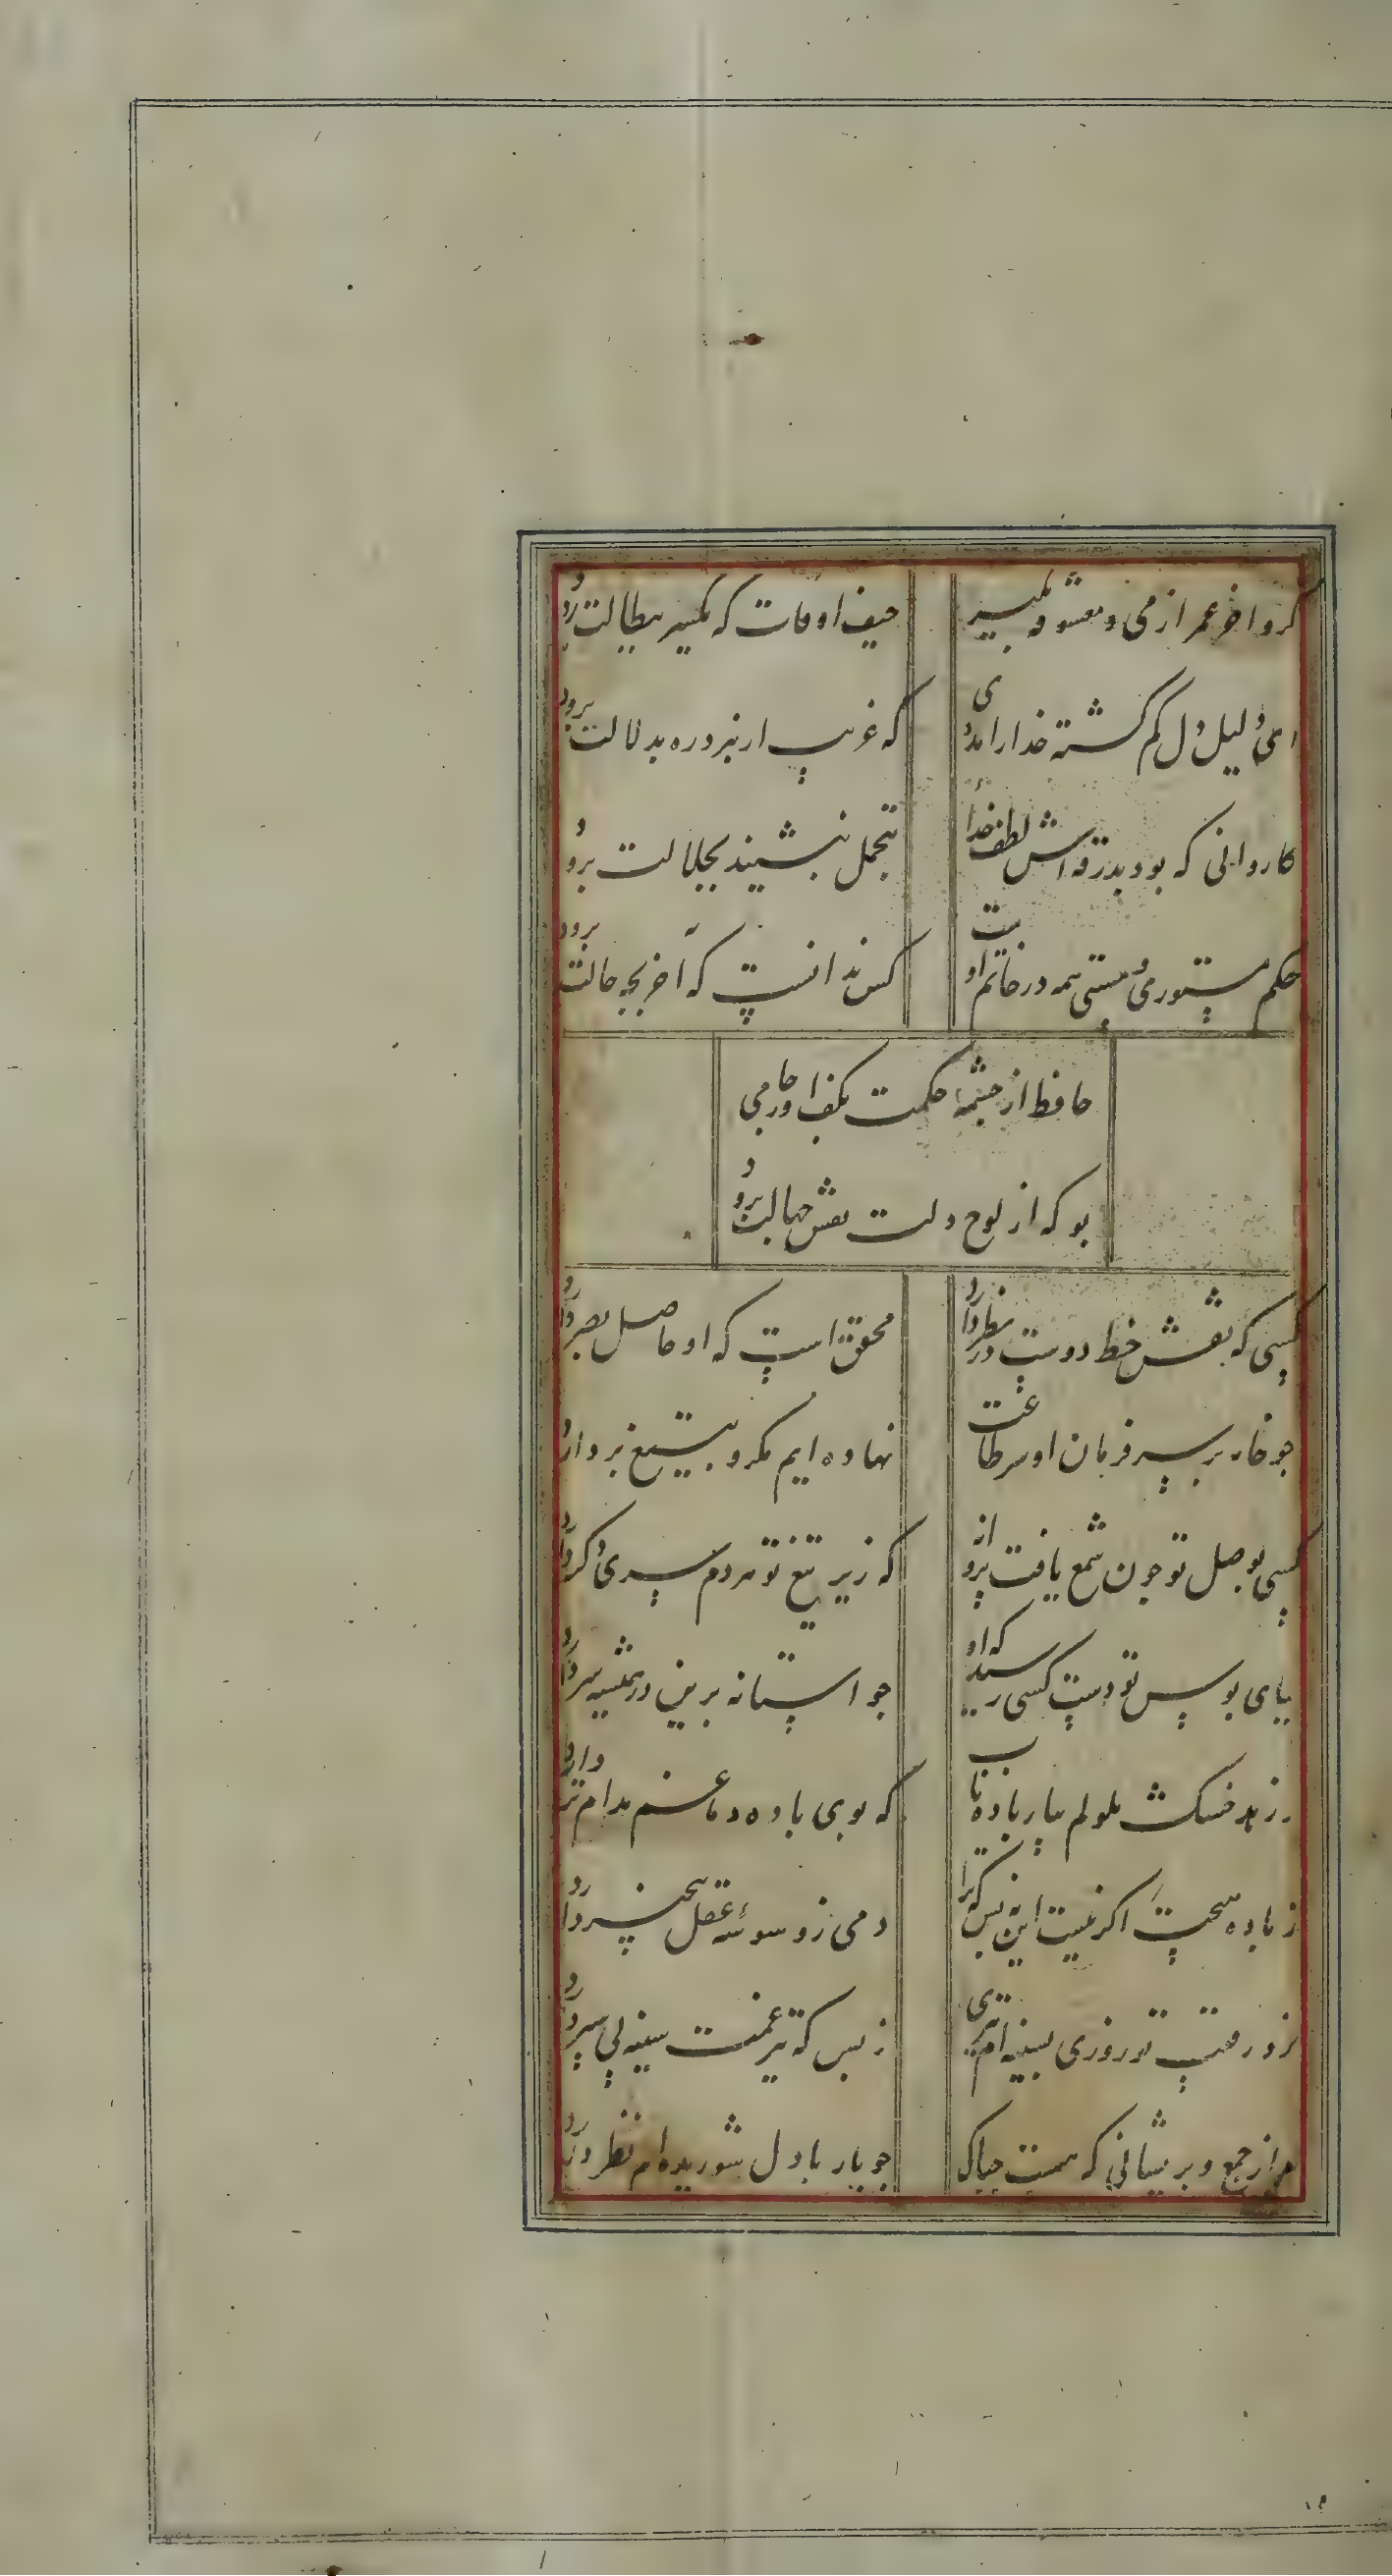 گرو اخر عمر از می و معشوقه بگیر
حیف اوقات که یکسر ببطالت رود
ای دلیل دل گم گشته خدا را مددی
که غریب ار نبرد ره بدلالت برود
کاروانی که بود بدرقه اش لطف خدا
بتجمل بنشیند بجلالت برود
حکم مستوری و مستی همه در خاتمتست او
کس ندانست که آخر بچه حالت برود
حافظ از چشمه حکمت بکف اور جامی
بو که از لوح دلت نقش جهالت برود
کسی که نقش خط دوست در نظر دارد
محقق است که او حاصل بصر دارد
جو خامه بر سر فرمان او سر طاعت
نهاده ایم مکر او بتیغ بردارد
کسی بوصل تو چون شمع یافت پروانه
که زیر تیغ تو هر دم سری دکر دارد
بپای بوس تو دست کسی رسید که او
جو استانه برین در همیشه سر دارد
ز زهد خشک ملولم بیار باده ناب
که بوی باده دماغم مدام تر دارد
ز باده هیچت اکر نیست این نه بس که ترا
دمی ز وسوسه عقل بیخبر دارد
نزد رقیب تو روزی بسینه ام تیری
ز بس که تیر غمت سینه بی سپر دارد
هم از جمع و پریشانی که هست چه باک
جو یار با دل شوریده ام نظر دارد